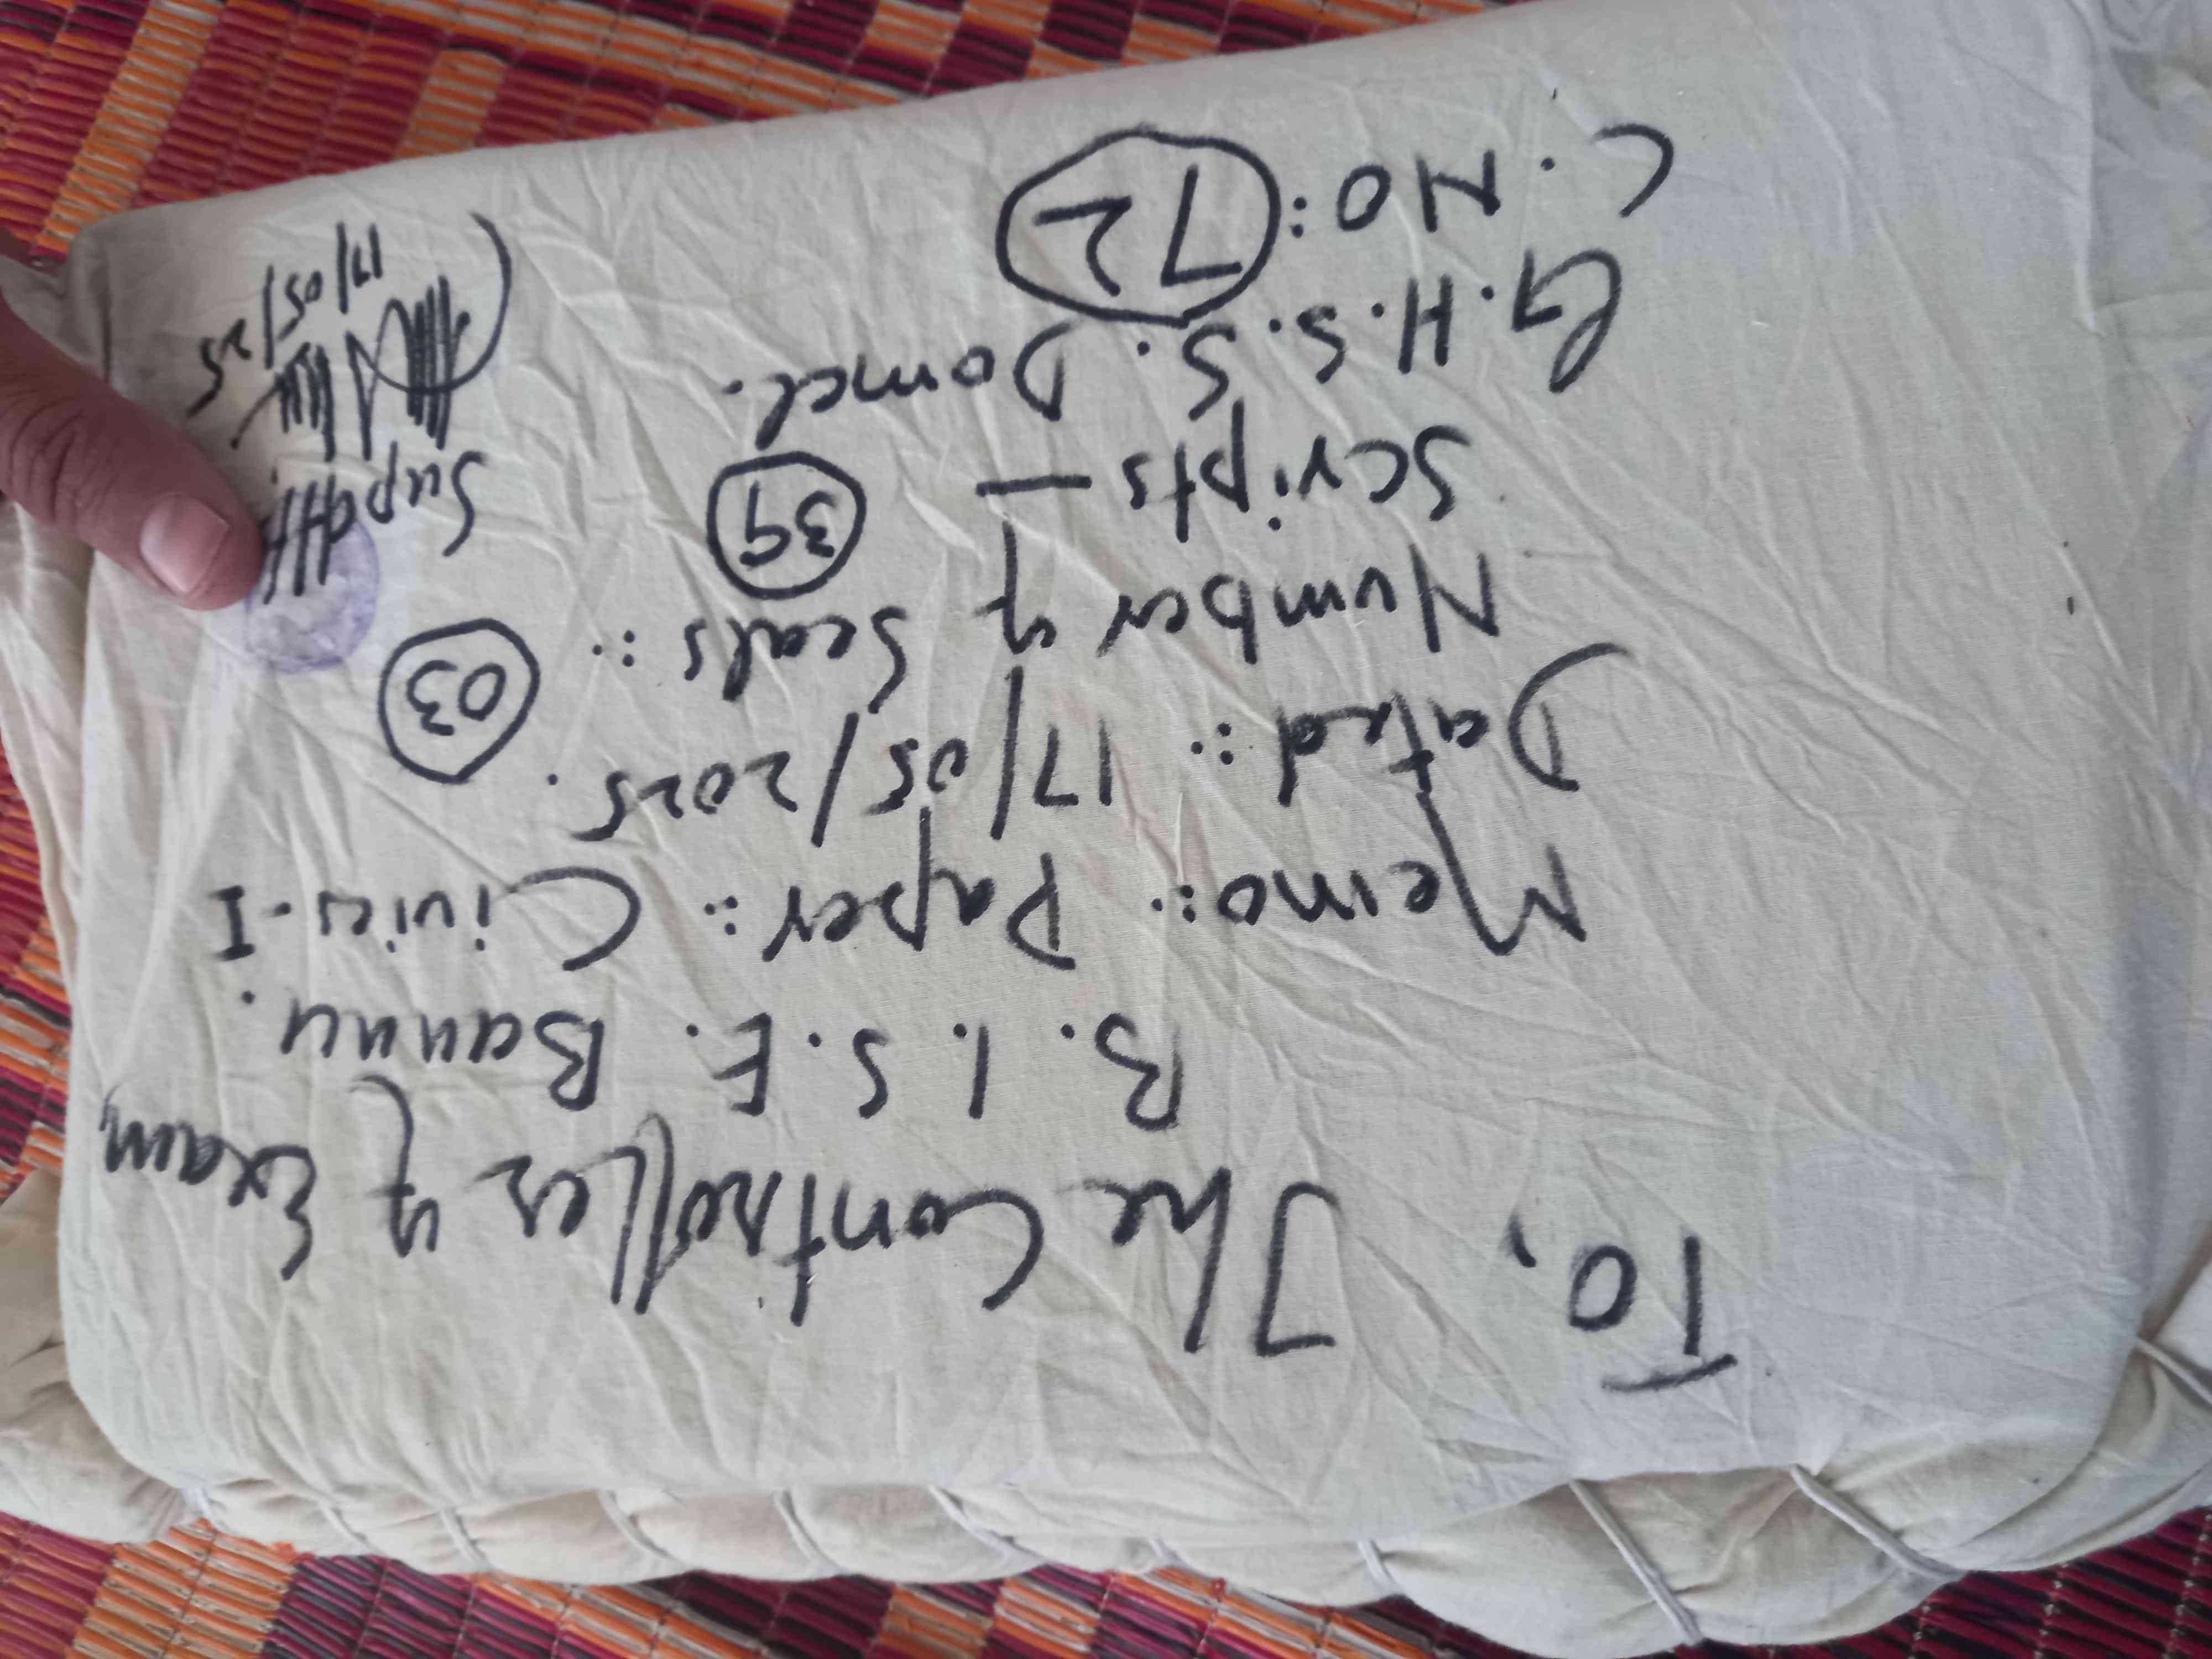 To,
The Controller of Exam,
B. I. S. E. Bannu.
Memo:: Paper:: Civics-I
Dated:: 17/05/2025.
Number of Seals:: 03
Scripts — 39
G.H.S.S. Domel.
C. NO: 72
Supdtt
17/05/25